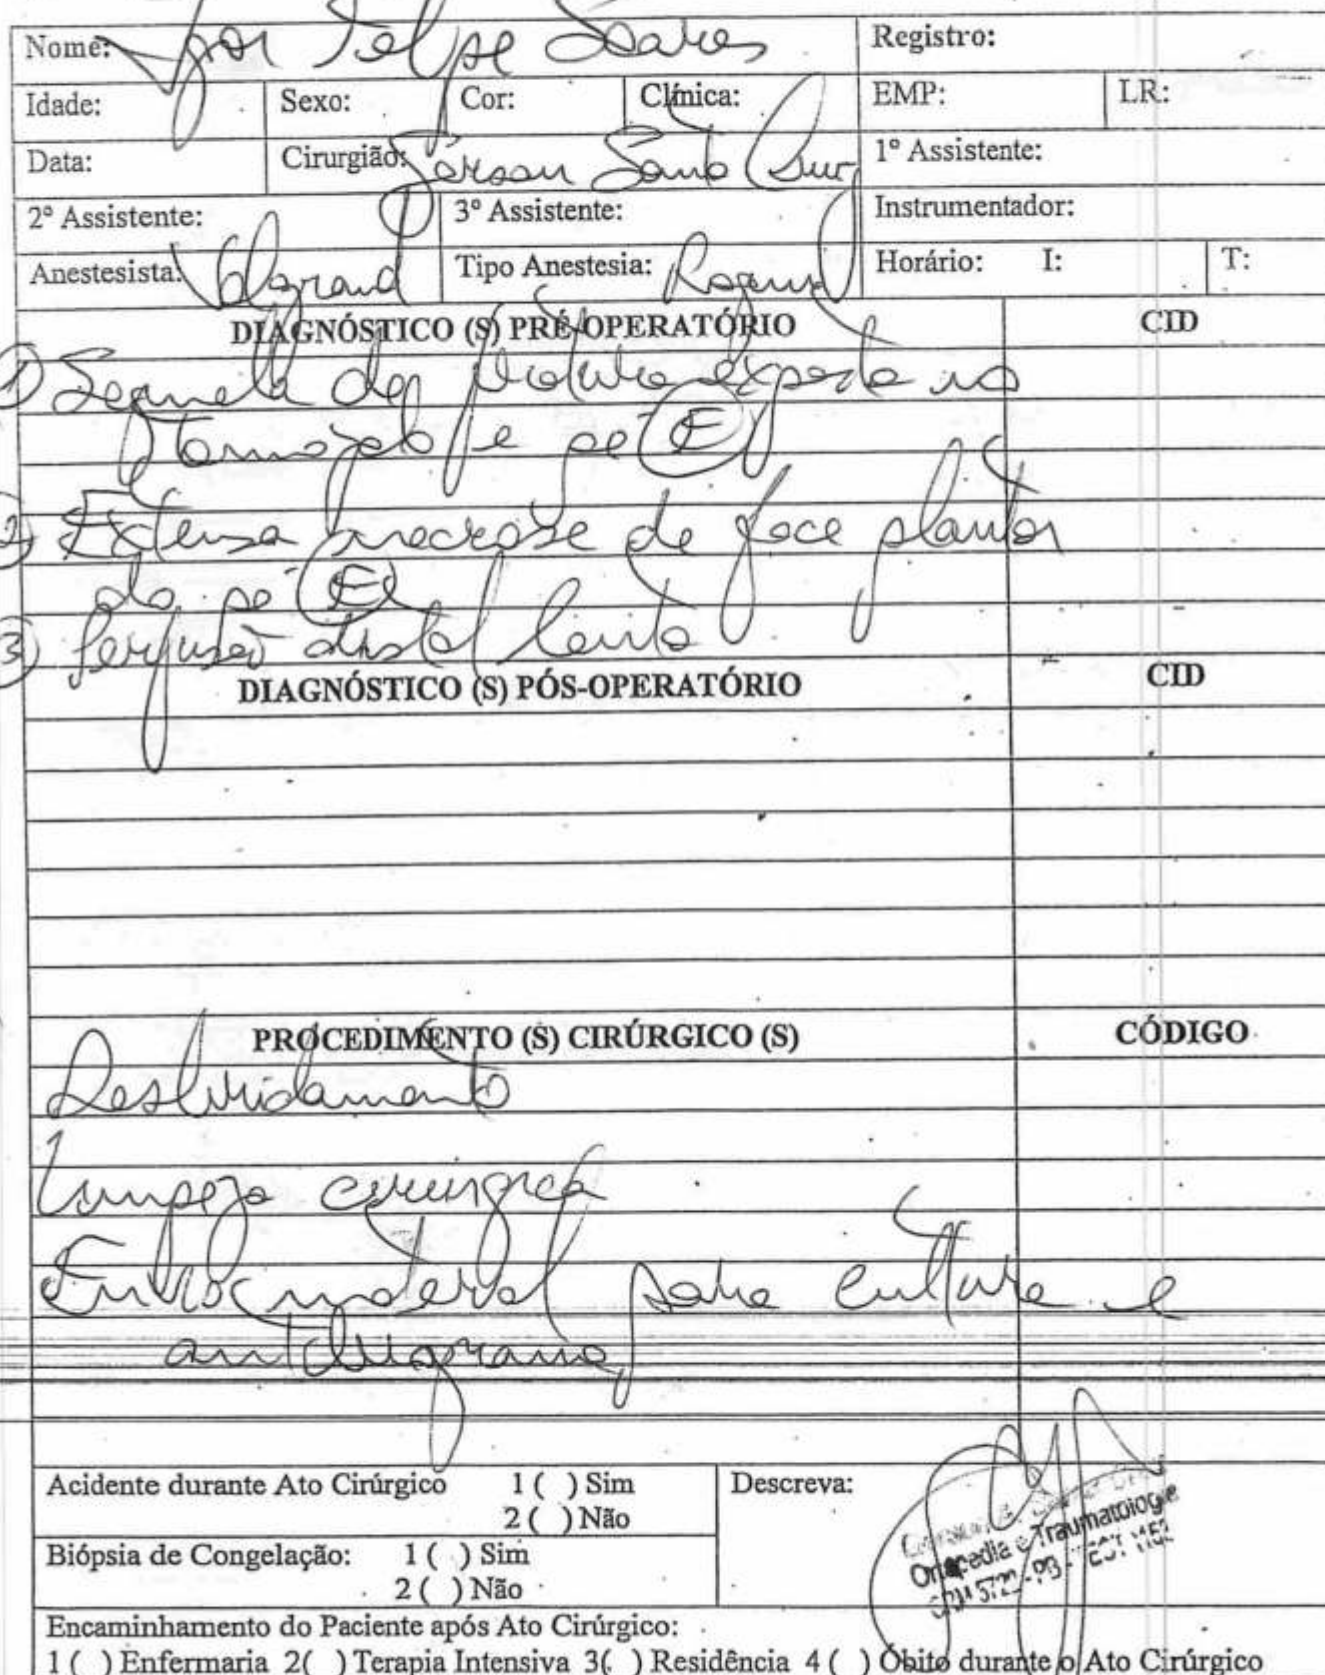 Nome: Igor Felipe Soares Registro:
Idade: Sexo: Cor: Clínica: EMP: LR:
Data: Cirurgião: Gerson Santa Cruz 1º Assistente:
2º Assistente: 3º Assistente: Instrumentador:
Anestesista: Tipo Anestesia: Horário: I: T:
DIAGNÓSTICO (S) PRÉ-OPERATÓRIO CID
1) Sequela de fratura exposta no
tornozelo e pé (E)
2) Extensa necrose de face plantar
do pé (E)
3) Perfusão distal lenta
DIAGNÓSTICO (S) PÓS-OPERATÓRIO CID
PROCEDIMENTO (S) CIRÚRGICO (S) CÓDIGO
Desbridamento
Limpeza cirurgica
material para cultura e
antibiograma
Acidente durante Ato Cirúrgico 1 ( ) Sim Descreva:
2 ( ) Não
Ortopedia e Traumatologia
CRM 5722 - PB - TEOT
Biópsia de Congelação: 1 ( ) Sim
2 ( ) Não
Encaminhamento do Paciente após Ato Cirúrgico:
1 ( ) Enfermaria 2( ) Terapia Intensiva 3( ) Residência 4 ( ) Óbito durante o Ato Cirúrgico